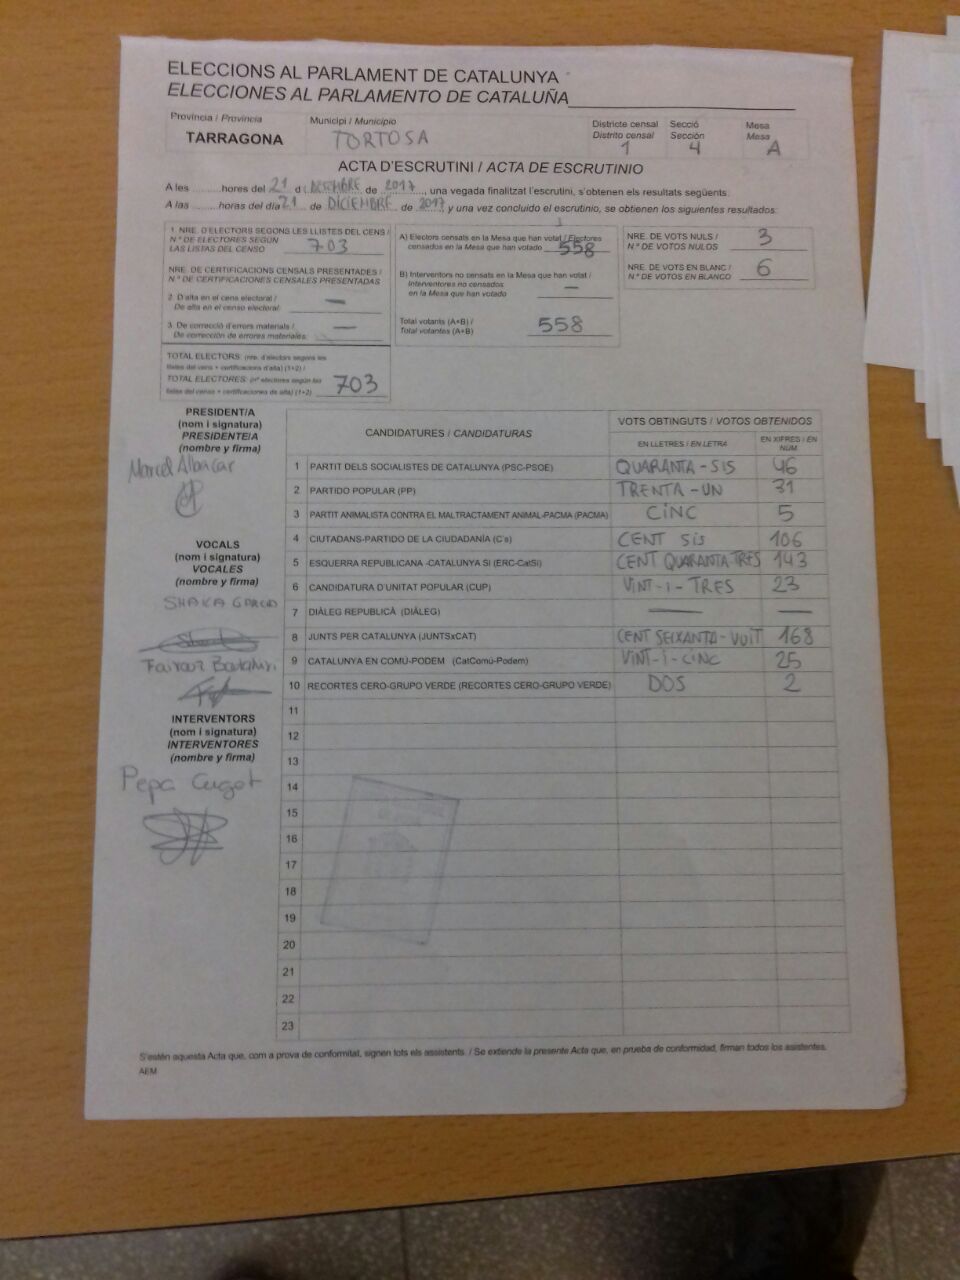 ELECCIONS AL PARLAMENT DE CATALUNYA
ELECCIONES AL PARLAMENTO DE CATALUÑA
Província / Provincia
TARRAGONA
Municipi / Municipio
TORTOSA
Districte censal
Distrito censal
1
Secció
Sección
4
Mesa
Mesa
A
ACTA D'ESCRUTINI / ACTA DE ESCRUTINIO
A les .......... hores del 21 d DESEMBRE de 2017, una vegada finalitzat l'escrutini, s'obtenen els resultats següents.
A las .......... horas del día 21 de DICIEMBRE de 2017 y una vez concluido el escrutinio, se obtienen los siguientes resultados:
1. NRE. D'ELECTORS SEGONS LES LLISTES DEL CENS /
N.º DE ELECTORES SEGÚN
LAS LISTAS DEL CENSO 703
NRE. DE CERTIFICACIONS CENSALS PRESENTADES /
N.º DE CERTIFICACIONES CENSALES PRESENTADAS
2. D'alta en el cens electoral /
De alta en el censo electoral: —
3. De correcció d'errors materials /
De corrección de errores materiales: —
TOTAL ELECTORS: (nre. d'electors segons les
llistes del cens + certificacions d'alta) (1+2) /
TOTAL ELECTORES: (nº electores según las
listas del censo + certificaciones de alta) (1+2) 703
A) Electors censats en la Mesa que han votat / Electores
censados en la Mesa que han votado 558
B) Interventors no censats en la Mesa que han votat /
Interventores no censados
en la Mesa que han votado —
Total votants (A+B) /
Total votantes (A+B) 558
NRE. DE VOTS NULS /
N.º DE VOTOS NULOS 3
NRE. DE VOTS EN BLANC /
N.º DE VOTOS EN BLANCO 6
PRESIDENT/A
(nom i signatura)
PRESIDENTE/A
(nombre y firma)
Marcel Albacar
VOCALS
(nom i signatura)
VOCALES
(nombre y firma)
SHAKA GARCIA
INTERVENTORS
(nom i signatura)
INTERVENTORES
(nombre y firma)
Pepa Cugat
CANDIDATURES / CANDIDATURAS
VOTS OBTINGUTS / VOTOS OBTENIDOS
EN LLETRES / EN LETRA
EN XIFRES / EN
NÚM.
1 PARTIT DELS SOCIALISTES DE CATALUNYA (PSC-PSOE) QUARANTA-SIS 46
2 PARTIDO POPULAR (PP) TRENTA-UN 31
3 PARTIT ANIMALISTA CONTRA EL MALTRACTAMENT ANIMAL-PACMA (PACMA) CINC 5
4 CIUTADANS-PARTIDO DE LA CIUDADANÍA (C's) CENT SIS 106
5 ESQUERRA REPUBLICANA -CATALUNYA SÍ (ERC-CatSí) CENT QUARANTA-TRES 143
6 CANDIDATURA D'UNITAT POPULAR (CUP) VINT-I-TRES 23
7 DIÀLEG REPUBLICÀ (DIÀLEG) — —
8 JUNTS PER CATALUNYA (JUNTSxCAT) CENT SEIXANTA-VUIT 168
9 CATALUNYA EN COMÚ-PODEM (CatComú-Podem) VINT-I-CINC 25
10 RECORTES CERO-GRUPO VERDE (RECORTES CERO-GRUPO VERDE) DOS 2
11
12
13
14
15
16
17
18
19
20
21
22
23
S'estén aquesta Acta que, com a prova de conformitat, signen tots els assistents. / Se extiende la presente Acta que, en prueba de conformidad, firman todos los asistentes.
AEM